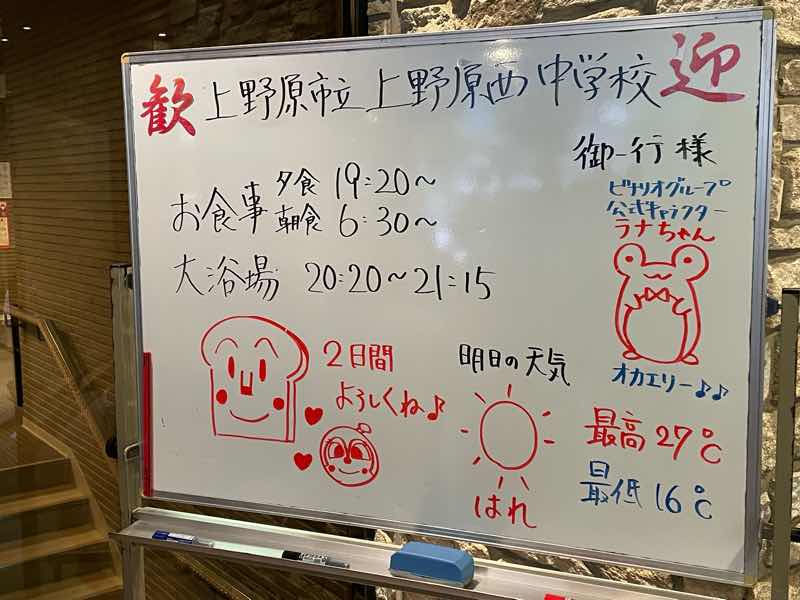 歓 上野原市立上野原西中学校 迎
御一行様
お食事 夕食 19:20～
朝食 6:30～
大浴場 20:20～21:15
ビナリオグループ
公式キャラクター
ラナちゃん
オカエリー♪♪
2日間
よろしくね♪
明日の天気
はれ
最高27℃
最低16℃